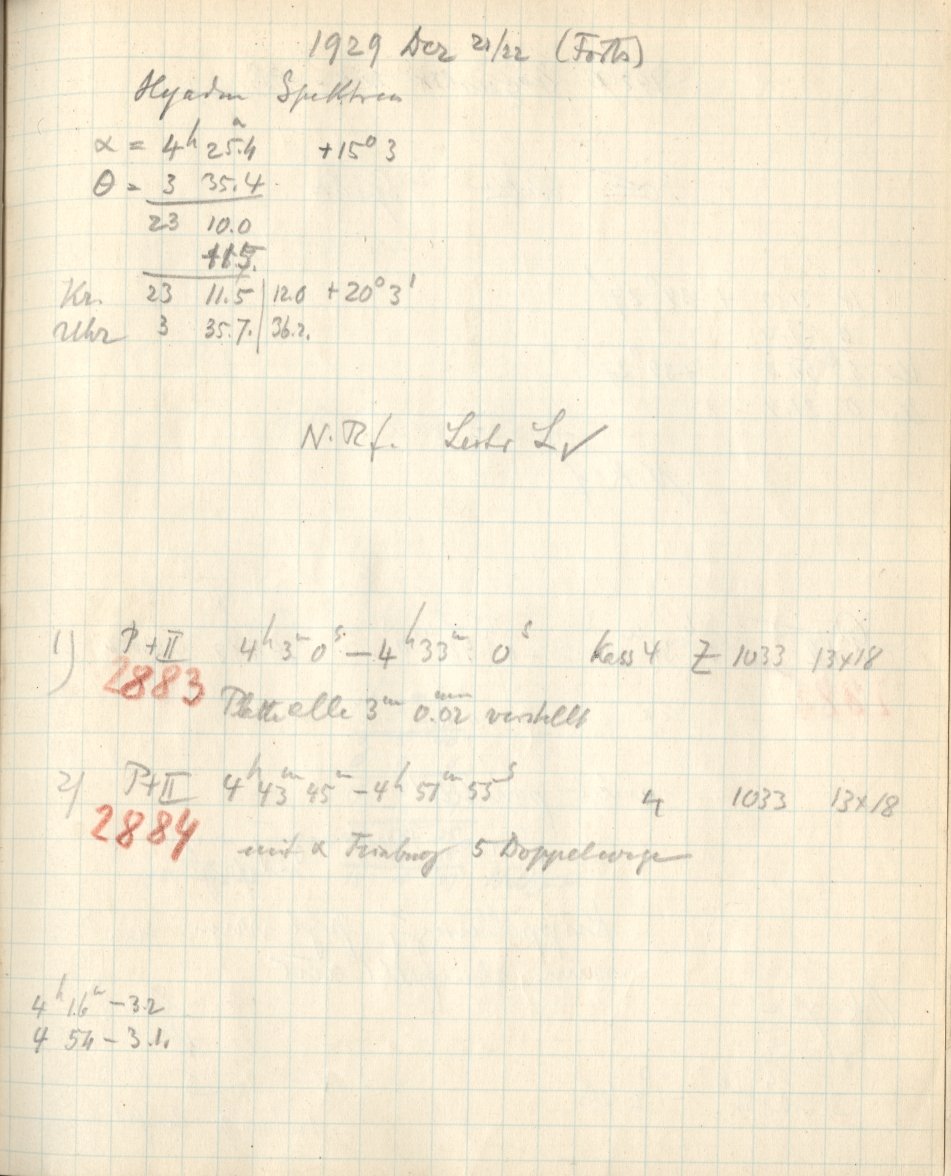 1929 Dez 21/22 (Forts)
Hyaden Spektren
α = 4h 25m.4 +15° 3
θ = 3 35.4
23 10.0
+1.5
Kr. 23 11.5 | 12.0 +20° 3'
Uhr 3 35.7. | 36.2.
N. Rf. L ✓
1) P+II 4h 3m 0s – 4h 33m 0s Kass 4 Z 1033 13x18
2883
Platte alle 3m 0.02mm verstellt
2) P+II 4h 43m 45m – 4h 51m 55s 4 1033 13x18
2884
mit α 5 Doppelwege
4h 16m – 3.2
4 54 – 3.1.